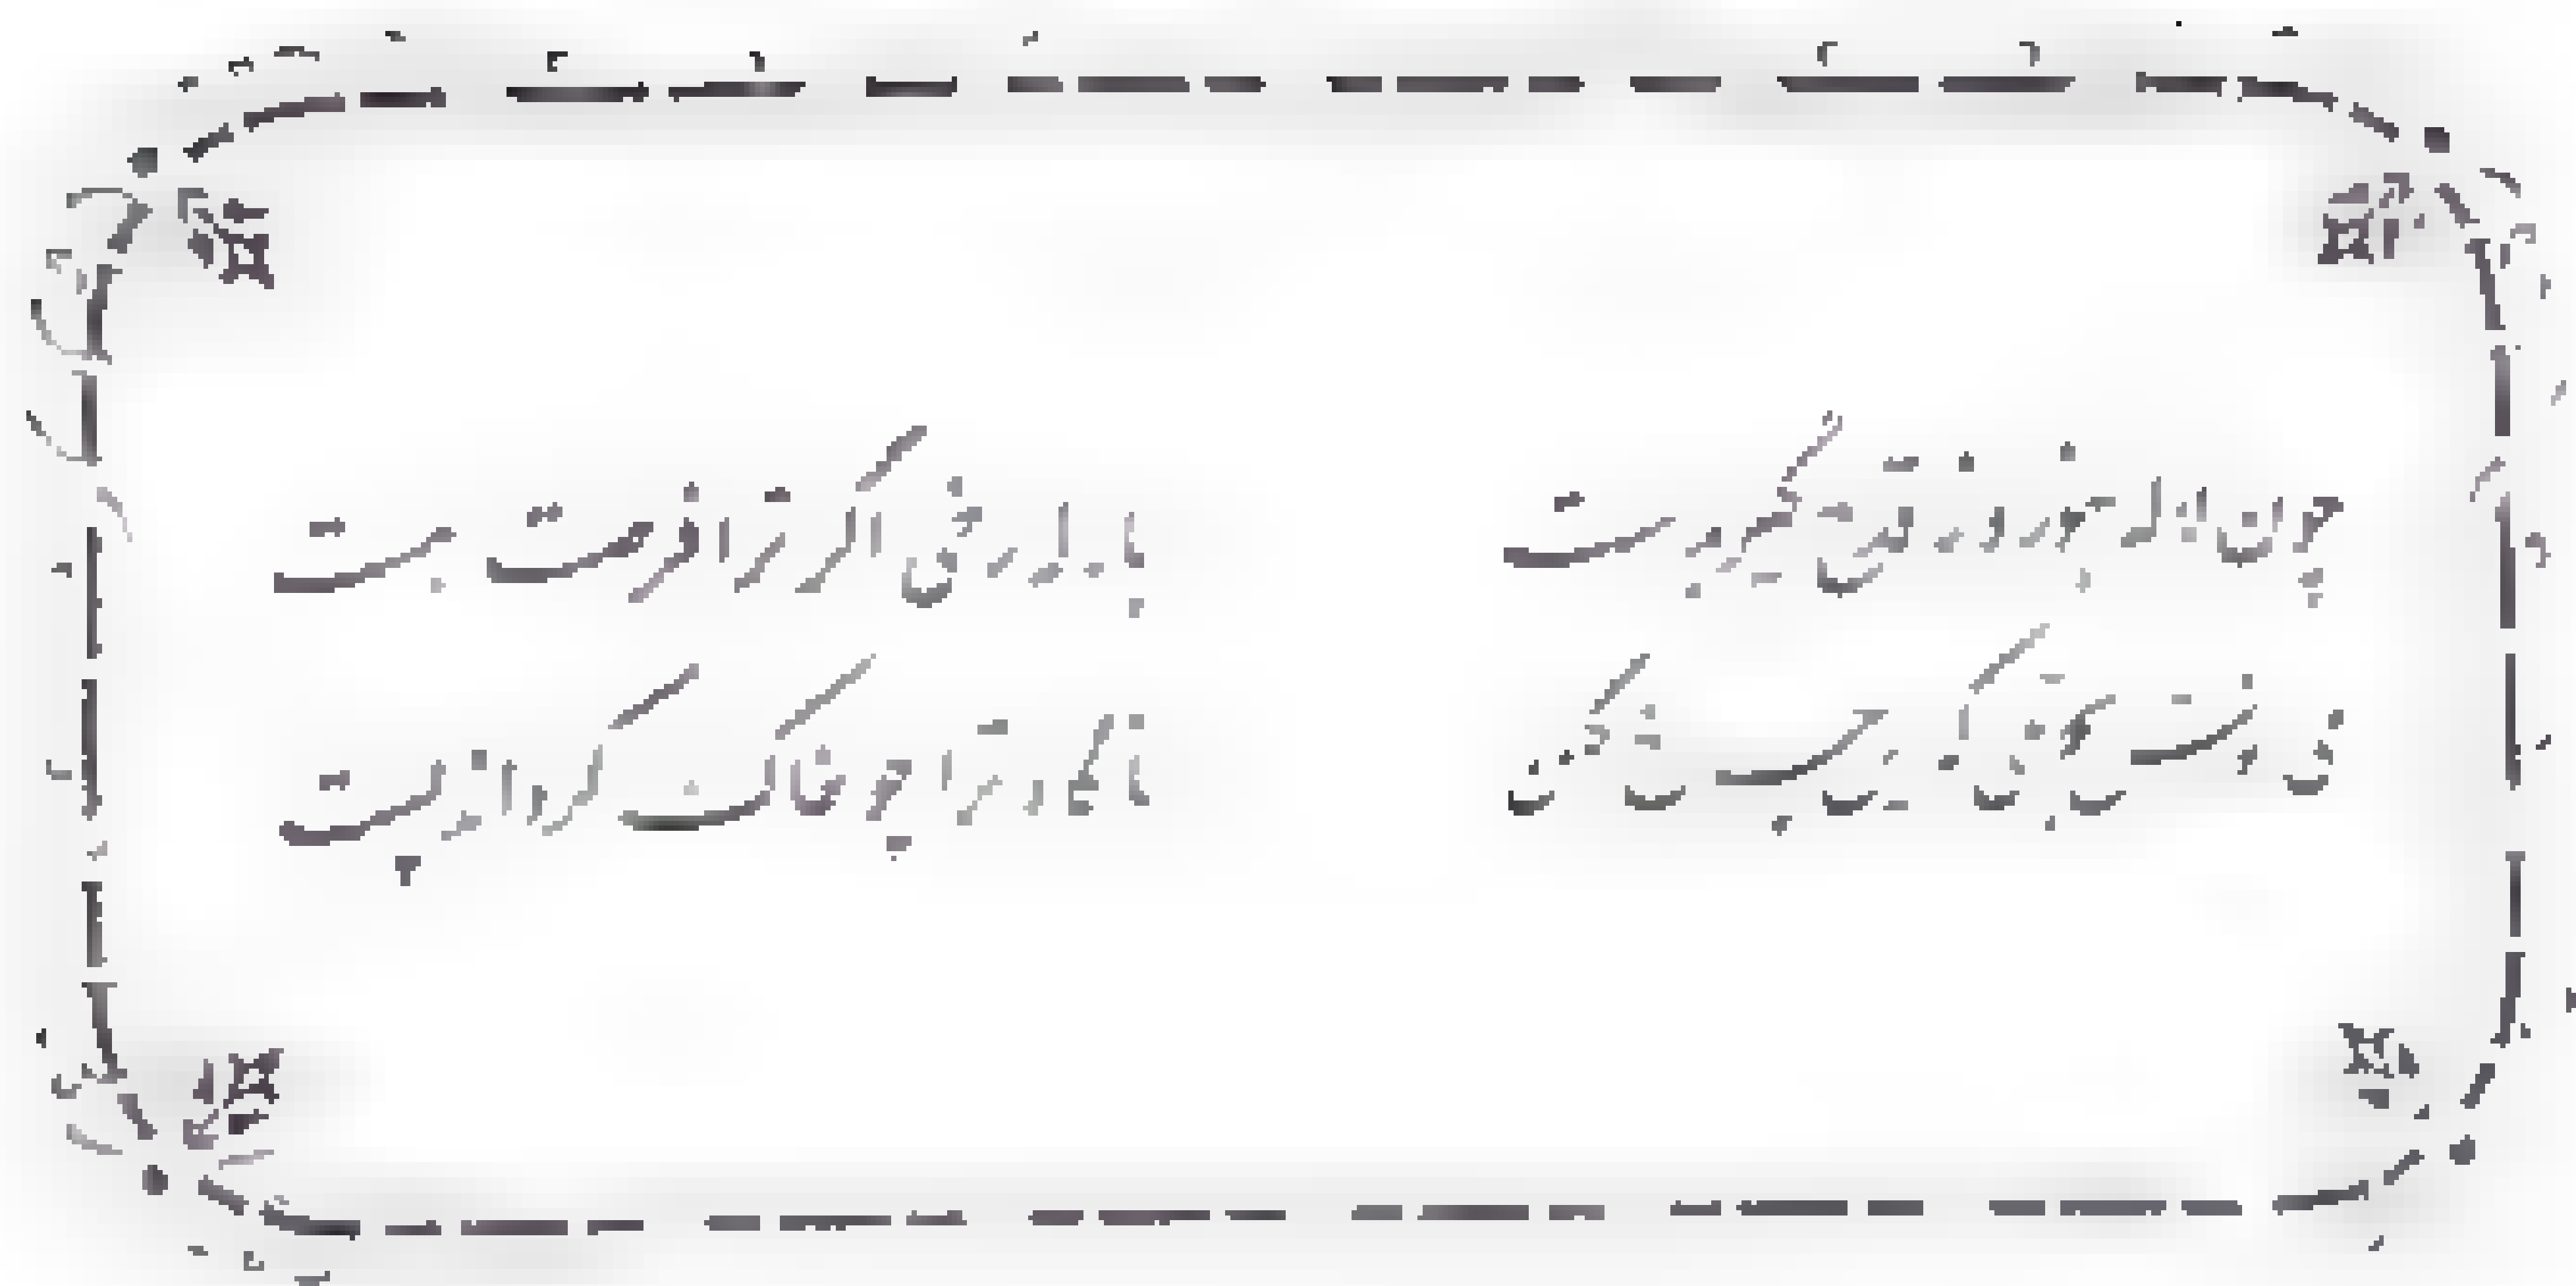 چون لاله بنوروز قدح گیر بدست
با لاله رخی اگر ترا فرصت هست
می نوش بخرمی که این چرخ کهن
ناگاه ترا چو خاک گرداند پست